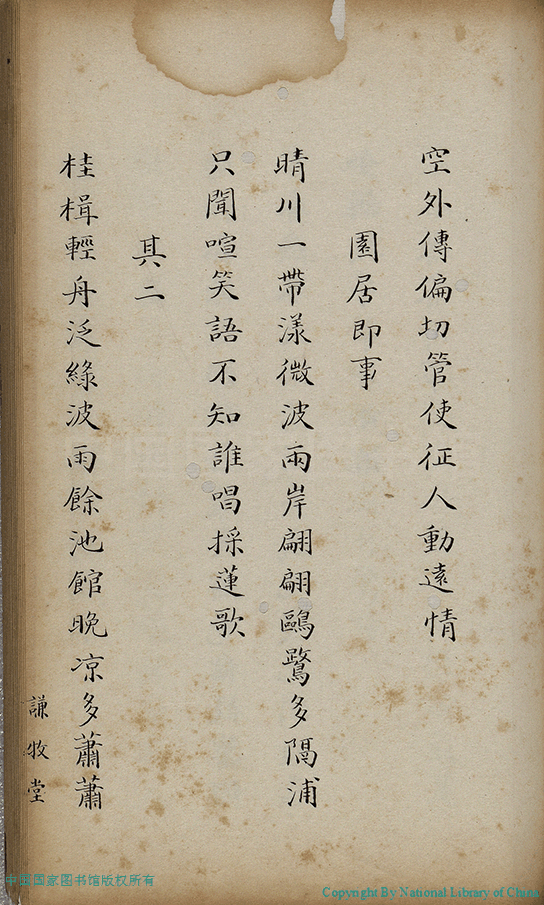 空外傳偏切管使征人動遠情
園居即事
晴川一帶漾微波兩岸翩翩鷗鷺多隔浦
只聞喧笑語不知誰唱採蓮歌
其二
桂楫輕舟泛綠波雨餘池館晚凉多蕭蕭
謙牧堂
中國国家图书馆版权所有
Copyright By National Library of China